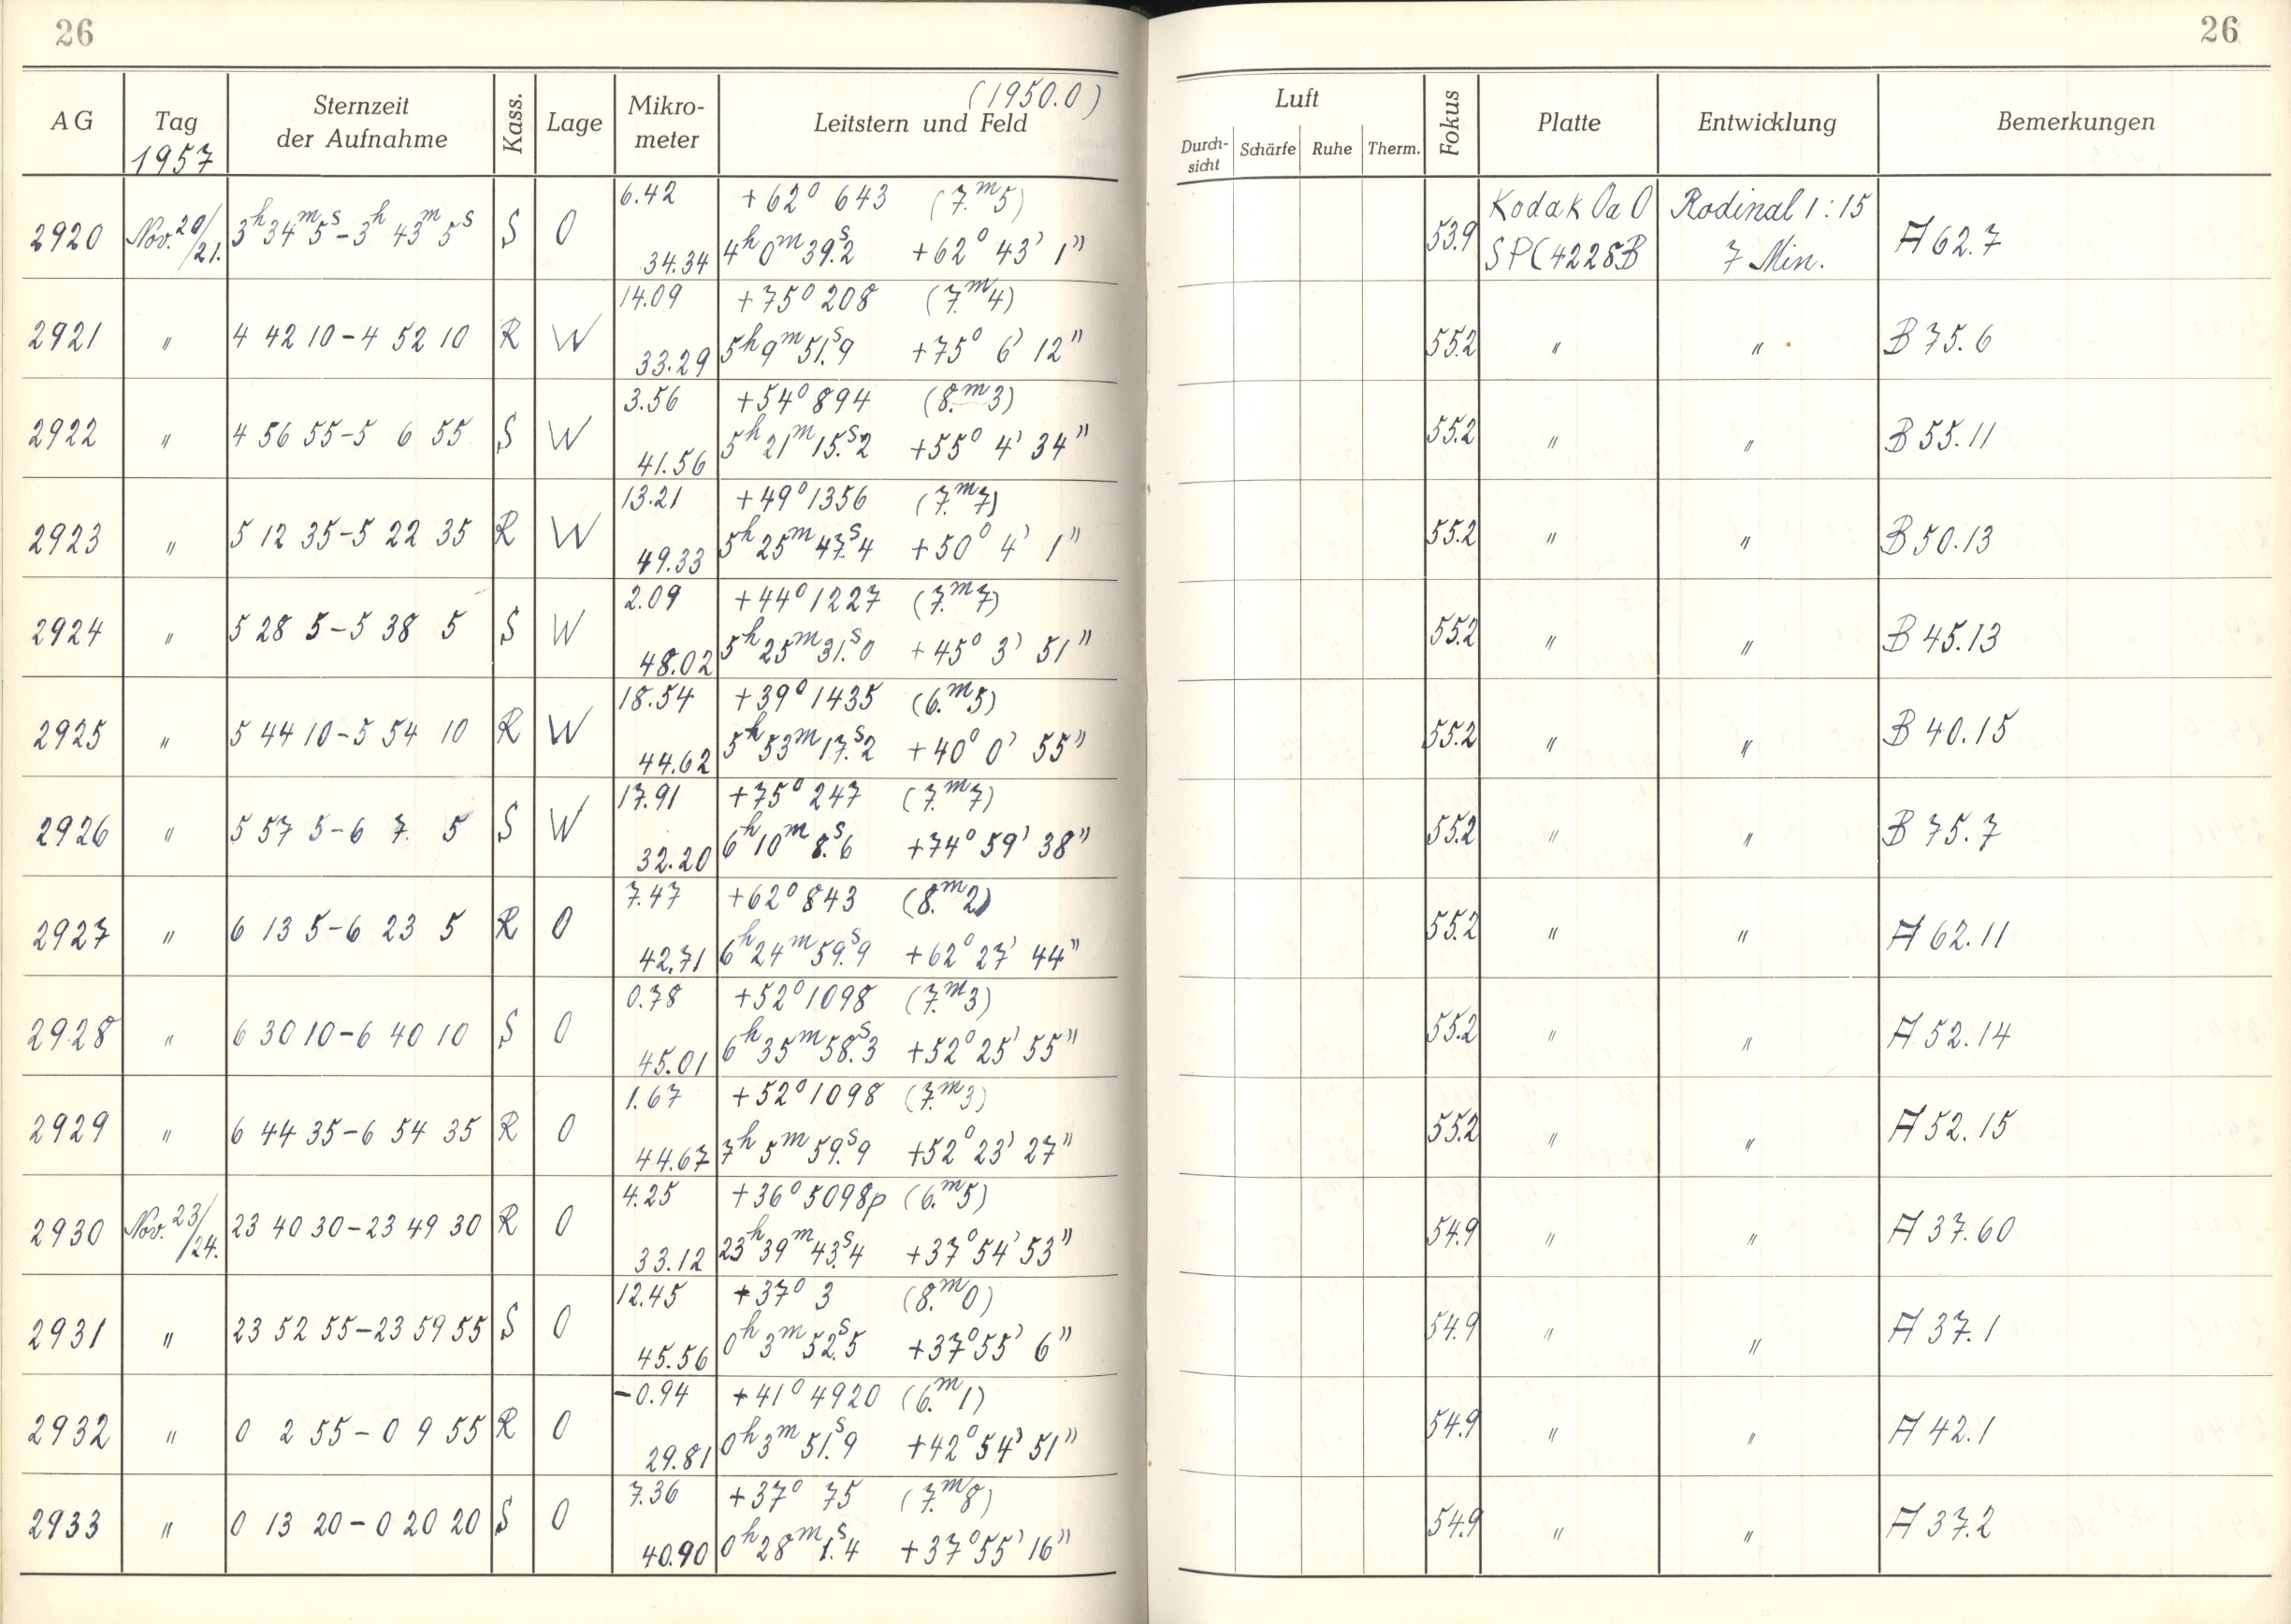 26
26
(1950.0)
AG Tag Sternzeit der Aufnahme Kass. Lage Mikro-meter Leitstern und Feld Luft Durch-sicht Schärfe Ruhe Therm. Fokus Platte Entwicklung Bemerkungen
1957
6.42 +62° 643 (7.ᵐ5) Kodak OaO Rodinal 1:15
2920 Nov. 20/21. 3ʰ34ᵐ5ˢ-3ʰ 43ᵐ 5ˢ S O 34.34 4ʰ 0ᵐ 39.ˢ2 +62° 43' 1" 53.9 SPC4228B 7 Min. A 62.7
14.09 +75° 208 (7.ᵐ4)
2921 " 4 42 10-4 52 10 R W 33.29 5ʰ 9ᵐ 51.ˢ9 +75° 6' 12" 55.2 " " B 75.6
3.56 +54° 894 (8.ᵐ3)
2922 " 4 56 55-5 6 55 S W 41.56 5ʰ 21ᵐ 15.ˢ2 +55° 4' 34" 55.2 " " B 55.11
13.21 +49° 1356 (7.ᵐ7)
2923 " 5 12 35-5 22 35 R W 49.33 5ʰ 25ᵐ 47.ˢ4 +50° 4' 1" 55.2 " " B 50.13
2.09 +44° 1227 (7.ᵐ7)
2924 " 5 28 5-5 38 5 S W 48.02 5ʰ 25ᵐ 31.ˢ0 +45° 3' 51" 55.2 " " B 45.13
18.54 +39° 1435 (6.ᵐ5)
2925 " 5 44 10-5 54 10 R W 44.62 5ʰ 53ᵐ 17.ˢ2 +40° 0' 55" 55.2 " " B 40.15
17.91 +75° 247 (7.ᵐ7)
2926 " 5 57 5-6 7 5 S W 32.20 6ʰ 10ᵐ 8.ˢ6 +74° 59' 38" 55.2 " " B 75.7
7.47 +62° 843 (8.ᵐ2)
2927 " 6 13 5-6 23 5 R O 42.71 6ʰ 24ᵐ 59.ˢ9 +62° 27' 44" 55.2 " " A 62.11
0.78 +52° 1098 (7.ᵐ3)
2928 " 6 30 10-6 40 10 S O 45.01 6ʰ 35ᵐ 58.ˢ3 +52° 25' 55" 55.2 " " A 52.14
1.67 +52° 1098 (7.ᵐ3)
2929 " 6 44 35-6 54 35 R O 44.67 7ʰ 5ᵐ 59.ˢ9 +52° 23' 27" 55.2 " " A 52.15
4.25 +36° 5098p (6.ᵐ5)
2930 Nov. 23/24. 23 40 30-23 49 30 R O 33.12 23ʰ 39ᵐ 43.ˢ4 +37° 54' 53" 54.9 " " A 37.60
12.45 +37° 3 (8.ᵐ0)
2931 " 23 52 55-23 59 55 S O 45.56 0ʰ 3ᵐ 52.ˢ5 +37° 55' 6" 54.9 " " A 37.1
-0.94 +41° 4920 (6.ᵐ1)
2932 " 0 2 55-0 9 55 R O 29.81 0ʰ 3ᵐ 51.ˢ9 +42° 54' 51" 54.9 " " A 42.1
7.36 +37° 75 (7.ᵐ8)
2933 " 0 13 20-0 20 20 S O 40.90 0ʰ 28ᵐ 1.ˢ4 +37° 55' 16" 54.9 " " A 37.2